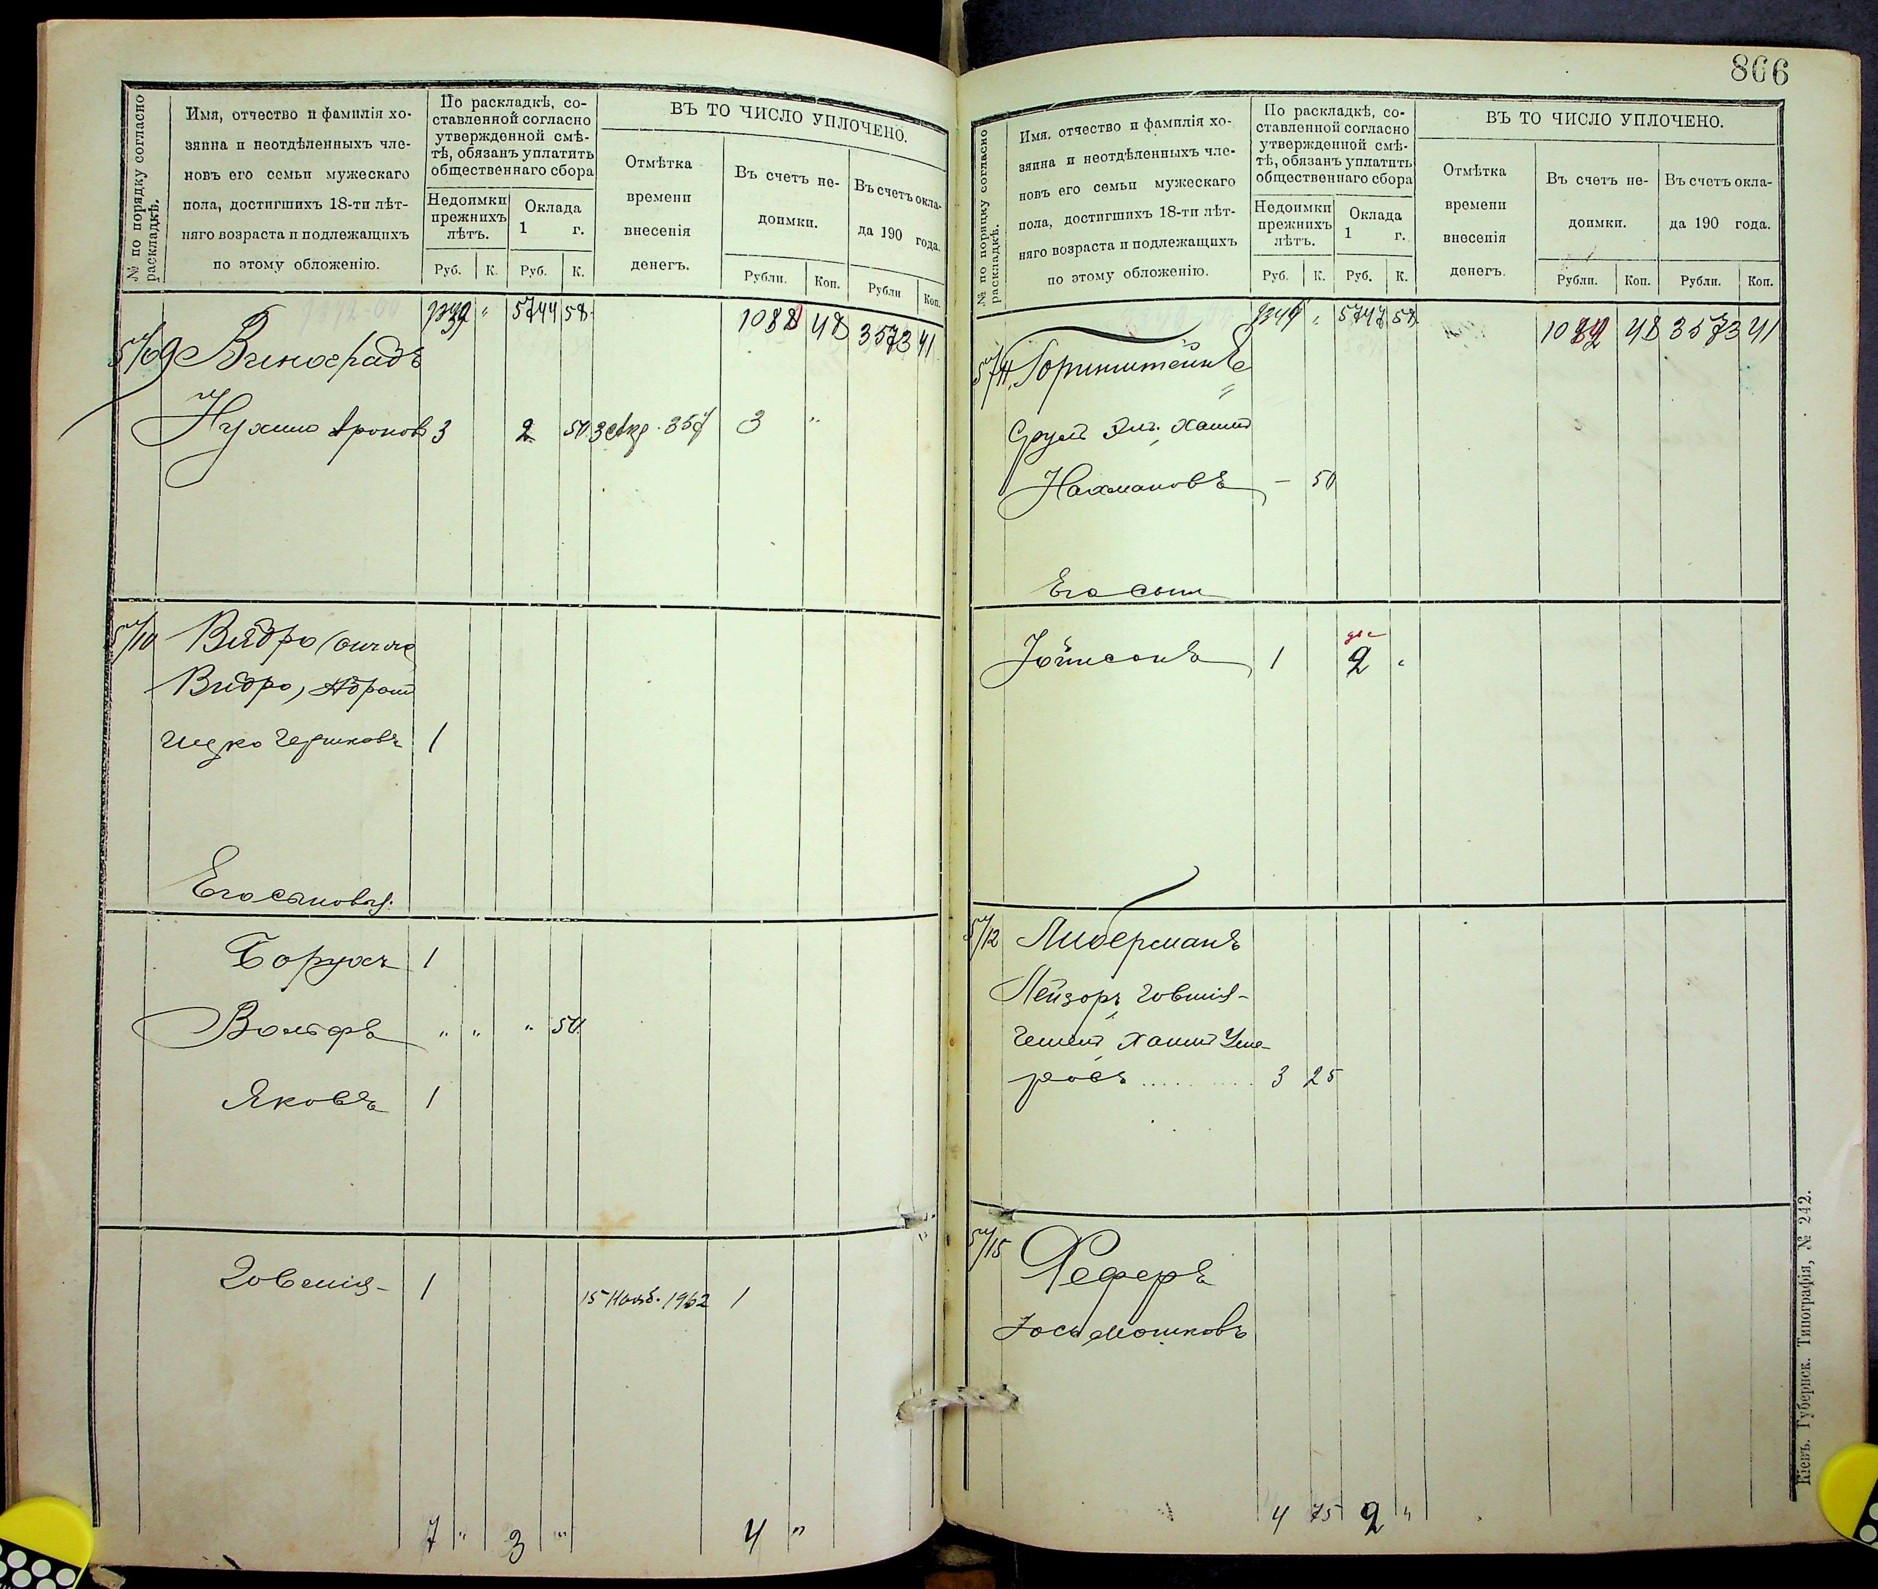 № по порядку согласно раскладкѣ.
Имя, отчество и фамилія хо-
зяина и неотдѣленныхъ чле-
новъ его семьи мужескаго
пола, достигшихъ 18-ти лѣт-
няго возраста и подлежащихъ
по этому обложенію.
По раскладкѣ, со-
ставленной согласно
утвержденной смѣ-
тѣ, обязанъ уплатить
общественнаго сбора
Недоимки
прежнихъ
лѣтъ.
Оклада
1 г.
Руб. К. Руб. К.
ВЪ ТО ЧИСЛО УПЛОЧЕНО.
Отмѣтка
времени
внесенія
денегъ.
Въ счетъ не-
доимки.
Въ счетъ окла-
да 190 года.
Рубли. Коп. Рубли Коп.
5744 58. 1088 48 3573 41
Виноградъ
Нухимъ Ароновъ 3 2 50 3 3 "
Видро
Видро, Абрамъ
Ицко Гершковъ 1
Его сыновья:
Борухъ 1
Вольфъ " " " 50
Яковъ 1
Іовсій 1 15 Нояб. 1902 1
7 " 3 " 4 "
866
№ по порядку согласно раскладкѣ.
Имя, отчество и фамилія хо-
зяина и неотдѣленныхъ чле-
новъ его семьи мужескаго
пола, достигшихъ 18-ти лѣт-
няго возраста и подлежащихъ
по этому обложенію.
По раскладкѣ, со-
ставленной согласно
утвержденной смѣ-
тѣ, обязанъ уплатить
общественнаго сбора
Недоимки
прежнихъ
лѣтъ.
Оклада
1 г.
Руб. К. Руб. К.
ВЪ ТО ЧИСЛО УПЛОЧЕНО.
Отмѣтка
времени
внесенія
денегъ.
Въ счетъ не-
доимки.
Въ счетъ окла-
да 190 года.
Рубли. Коп. Рубли. Коп.
5747 58 1092 48 3573 41
Горинштейнъ
Сруль Хаимъ
Нахмановъ - 50
Его сынъ
Іойнсонъ 1 2 "
5/12 Либерманъ
Лейзоръ
Хаимъ
3 25
5/15 Феферъ
Іось Мошковъ
4 75 2 "
Кіевъ. Губернск. Типографія, № 242.